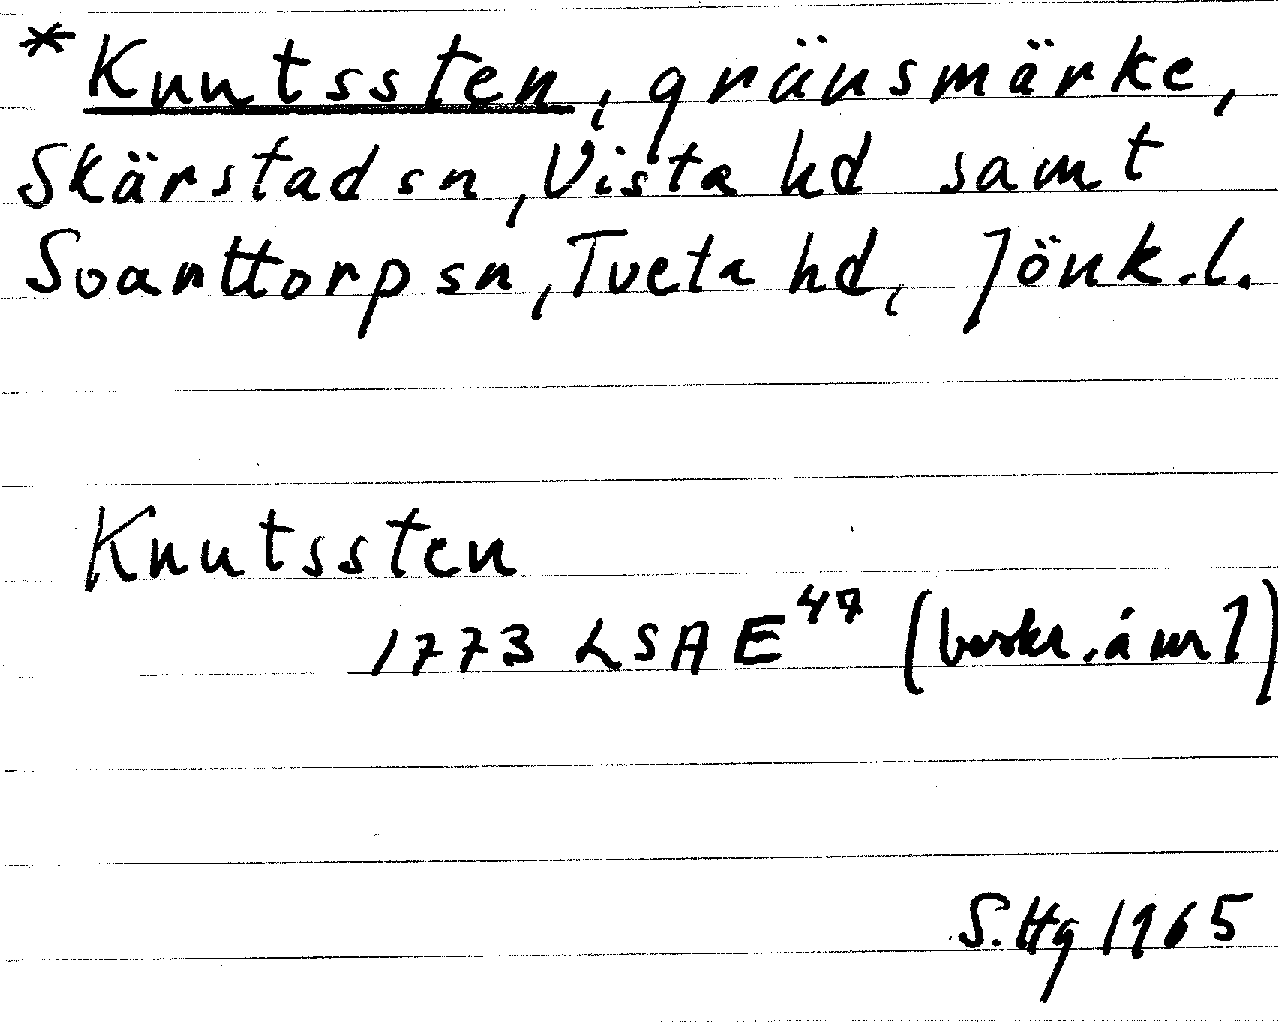 *Knutssten, gränsmärke,
Skärstad sn, Vista hd samt
Svarttorp sn, Tveta hd, Jönk.l.
Knutssten
1773 LSA E47 (beskr. å nr 1)
S.Hg 1965